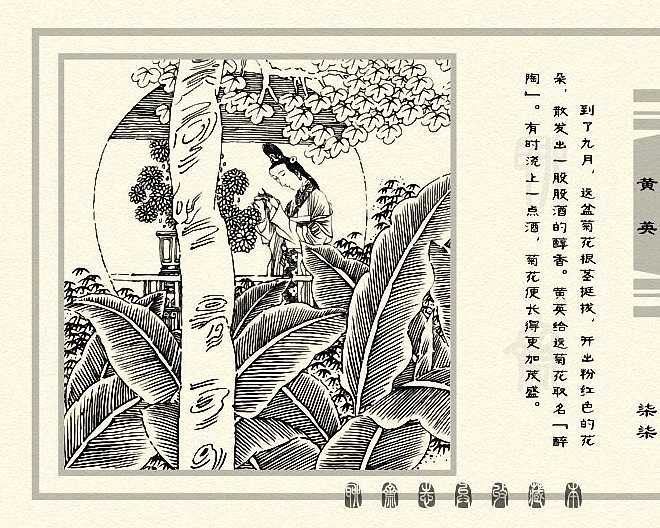 到了九月，这盆菊花根茎挺拔，开出粉红色的花
朵，散发出一股股酒的醇香。黄英给这菊花取名『醉
陶』。有时浇上一点酒，菊花便长得更加茂盛。
黄英
柒柒
聊斋志异收藏本